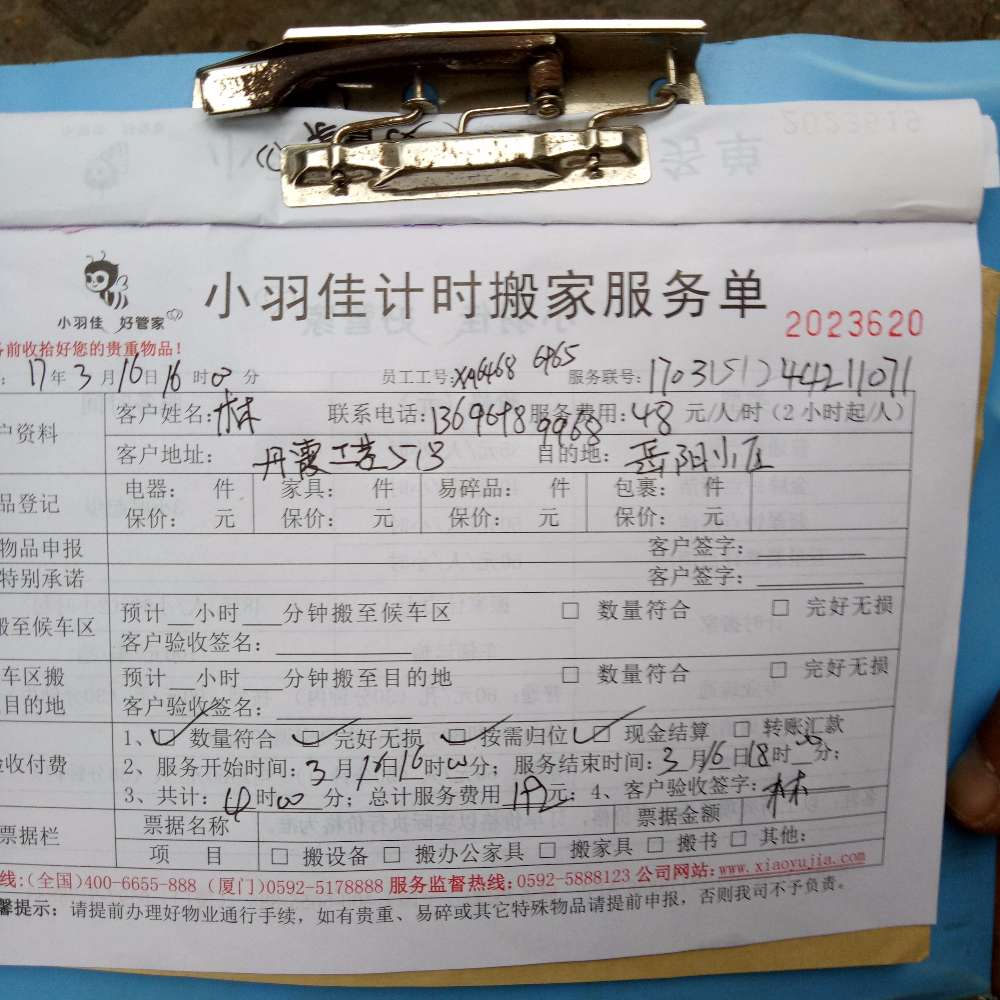 小羽佳计时搬家服务单
小羽佳 好管家
2023620
前收拾好您的贵重物品!
: 17年3月16日16时00分 员工工号: XA6468 6965 服务联号: 1703151244211071
户资料 客户姓名:林 联系电话:1369698 9968 服务费用:48元/人/时(2小时起/人)
客户地址: 丹霞 513 目的地: 岳阳小区
品登记 电器: 件 家具: 件 易碎品: 件 包裹: 件
保价: 元 保价: 元 保价: 元 保价: 元
物品申报 客户签字:
特别承诺 客户签字:
搬至候车区 预计__小时___分钟搬至候车区 □ 数量符合 □ 完好无损
客户验收签名:
车区搬 预计__小时___分钟搬至目的地 □ 数量符合 □ 完好无损
目的地 客户验收签名:
验收付费 1、☑ 数量符合 ☑ 完好无损 ☑ 按需归位 ☑ 现金结算 □ 转账汇款
2、服务开始时间:3月16日16时00分;服务结束时间:3月16日18时00分;
3、共计:4时00分;总计服务费用192元;4、客户验收签字:林
票据栏 票据名称 票据金额
项 目 □ 搬设备 □ 搬办公家具 □ 搬家具 □ 搬书 □ 其他:
线:(全国)400-6655-888 (厦门)0592-5178888 服务监督热线:0592-5888123 公司网站:www.xiaoyujia.com
馨提示:请提前办理好物业通行手续,如有贵重、易碎或其它特殊物品请提前申报,否则我司不予负责。